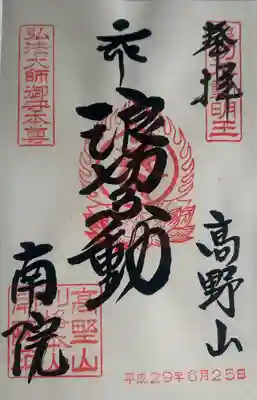 奉拝
高野山
浪切不動
南院
弘法大師御守本尊
明王
高野山
平成29年6月25日